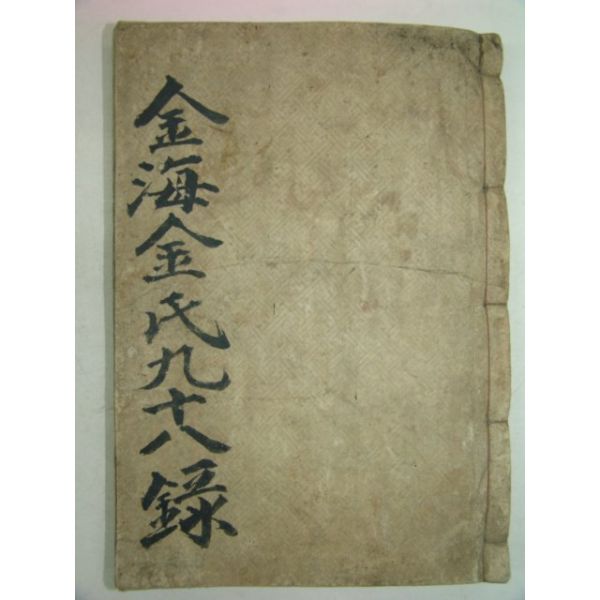 金海金氏九十八錄